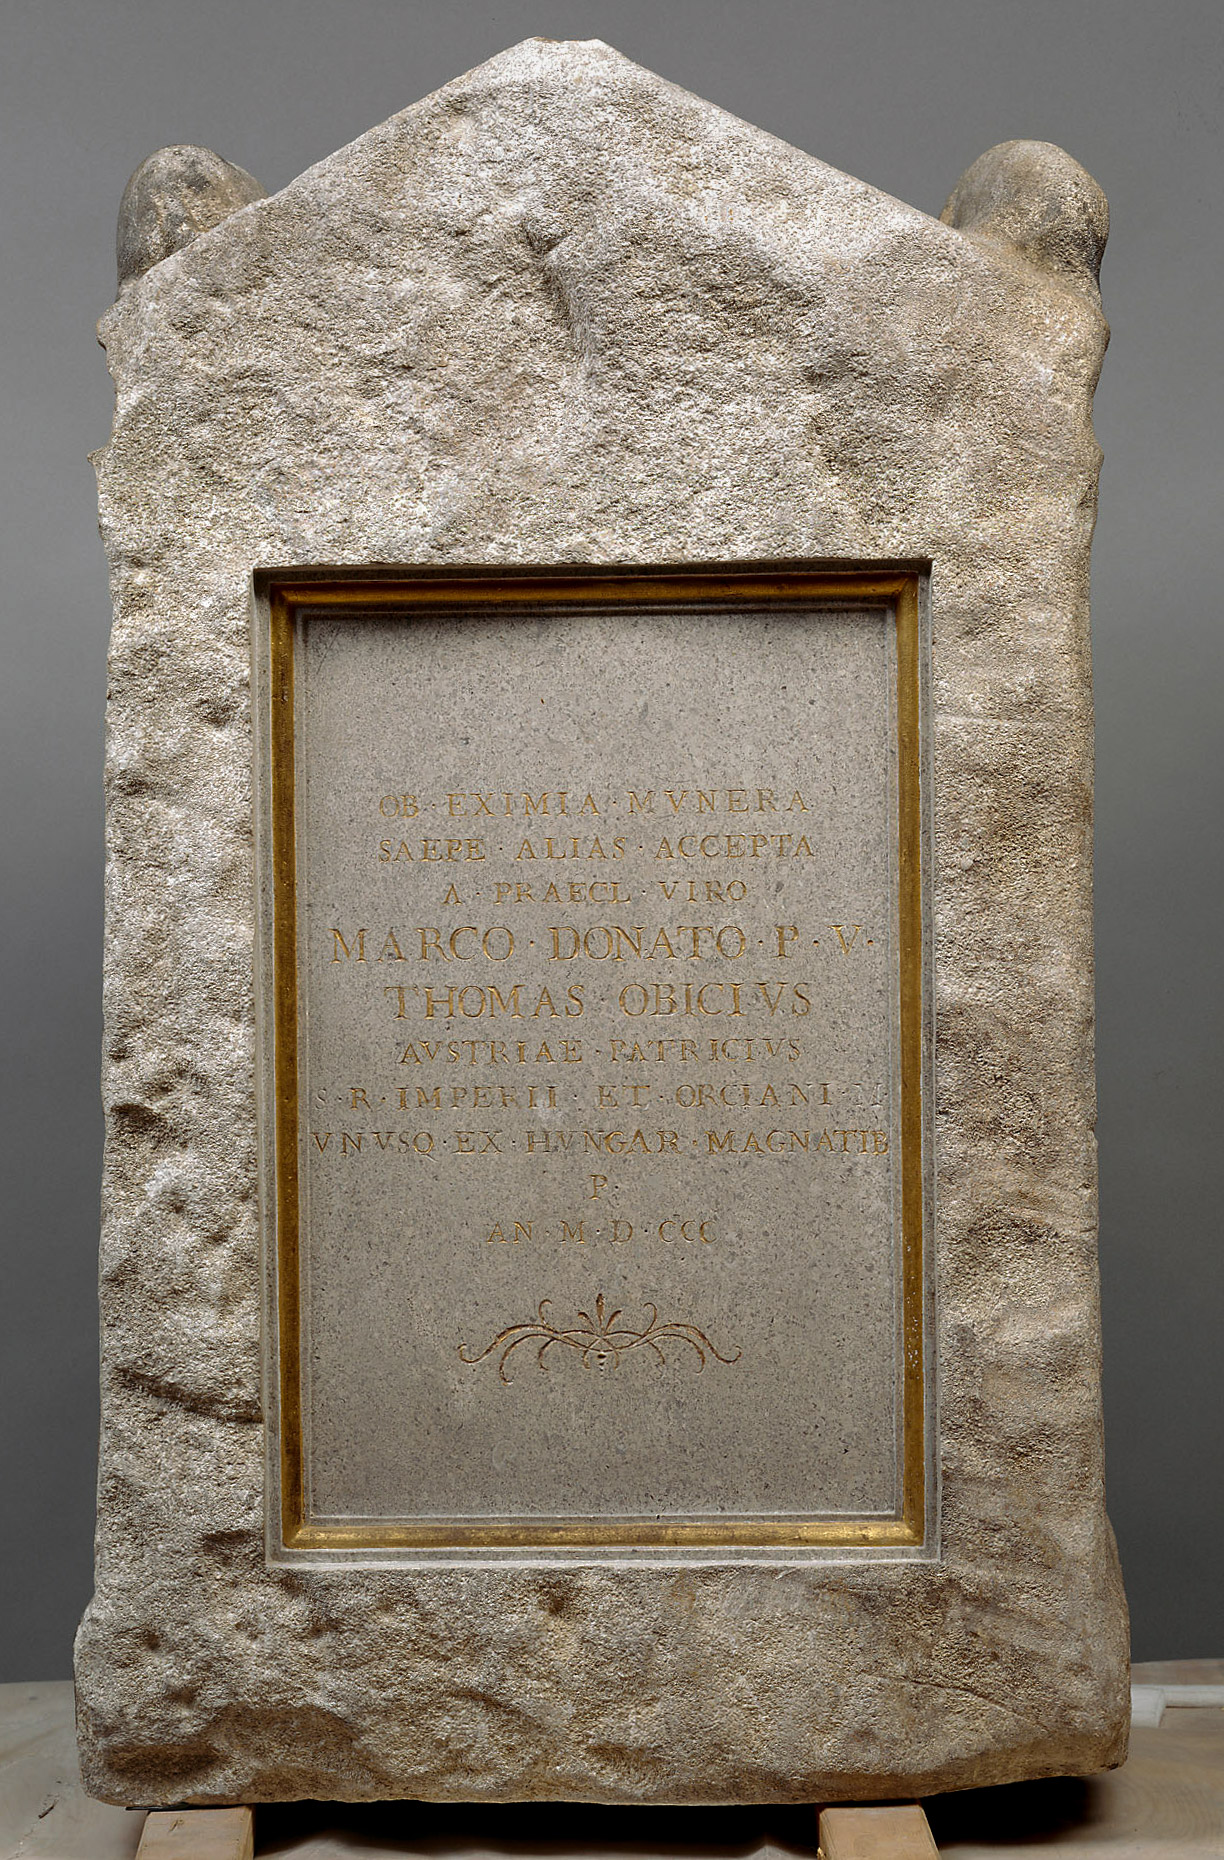 OB · EXIMIA · MVNERA
SAEPE · ALIAS · ACCEPTA
A · PRAECL · VIRO
MARCO · DONATO · P · V ·
THOMAS · OBICIVS
AVSTRIAE · PATRICIVS
S · R · IMPERII · ET · ORCIANI · M
VNVSQ · EX · HVNGAR · MAGNATIB
P ·
AN · M · D · CCC